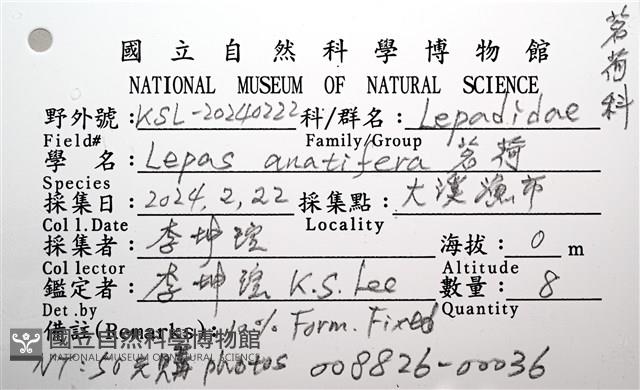 茗荷科
國立自然科學博物館
NATIONAL MUSEUM OF NATURAL SCIENCE
野外號: KSL-20240222 科/群名: Lepadidae
Field# Family/Group
學 名: Lepas anatifera 茗荷
Species
採集日: 2024, 2, 22 採集點: 大溪漁市
Col l. Date Locality
採集者: 李坤瑄 海拔: 0 m
Col lector Altitude
鑑定者: 李坤瑄 K.S. Lee 數量: 8
Det .by Quantity
備註(Remarks): 10% Form. Fixed
國立自然科學博物館
NATIONAL MUSEUM OF NATURAL SCIENCE
NT: 50元購 photos 008826-00036